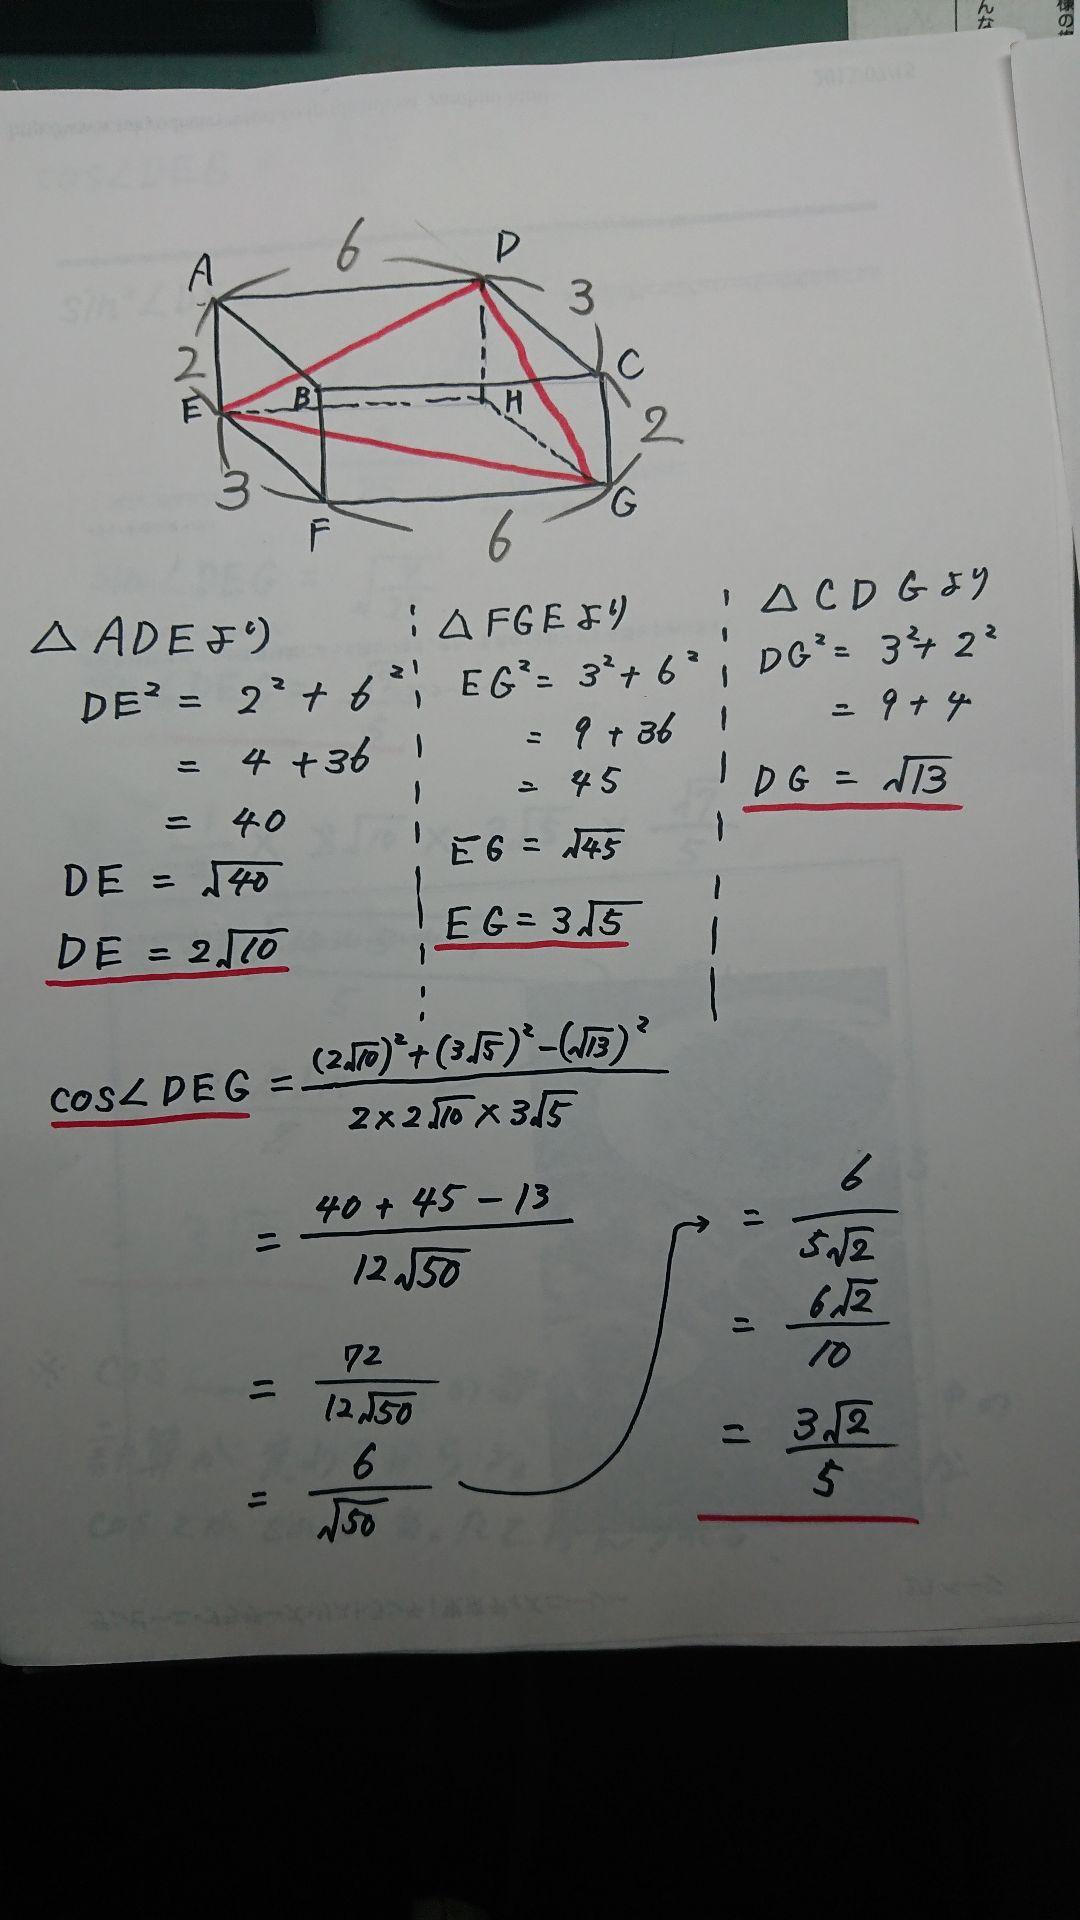 んな
様の
2017/07/18
cos∠DEG
A
6
D
3
2
C
E
B
H
2
3
G
F
6
△ADEより
DE² = 2² + 6²
= 4 + 36
= 40
DE = √40
DE = 2√10
△FGEより
EG² = 3² + 6²
= 9 + 36
= 45
EG = √45
EG = 3√5
△CDGより
DG² = 3² + 2²
= 9 + 4
DG = √13
cos∠DEG = ((2√10)² + (3√5)² − (√13)²) / (2×2√10×3√5)
= (40 + 45 − 13) / (12√50)
= 72 / (12√50)
= 6 / √50
= 6 / (5√2)
= 6√2 / 10
= 3√2 / 5